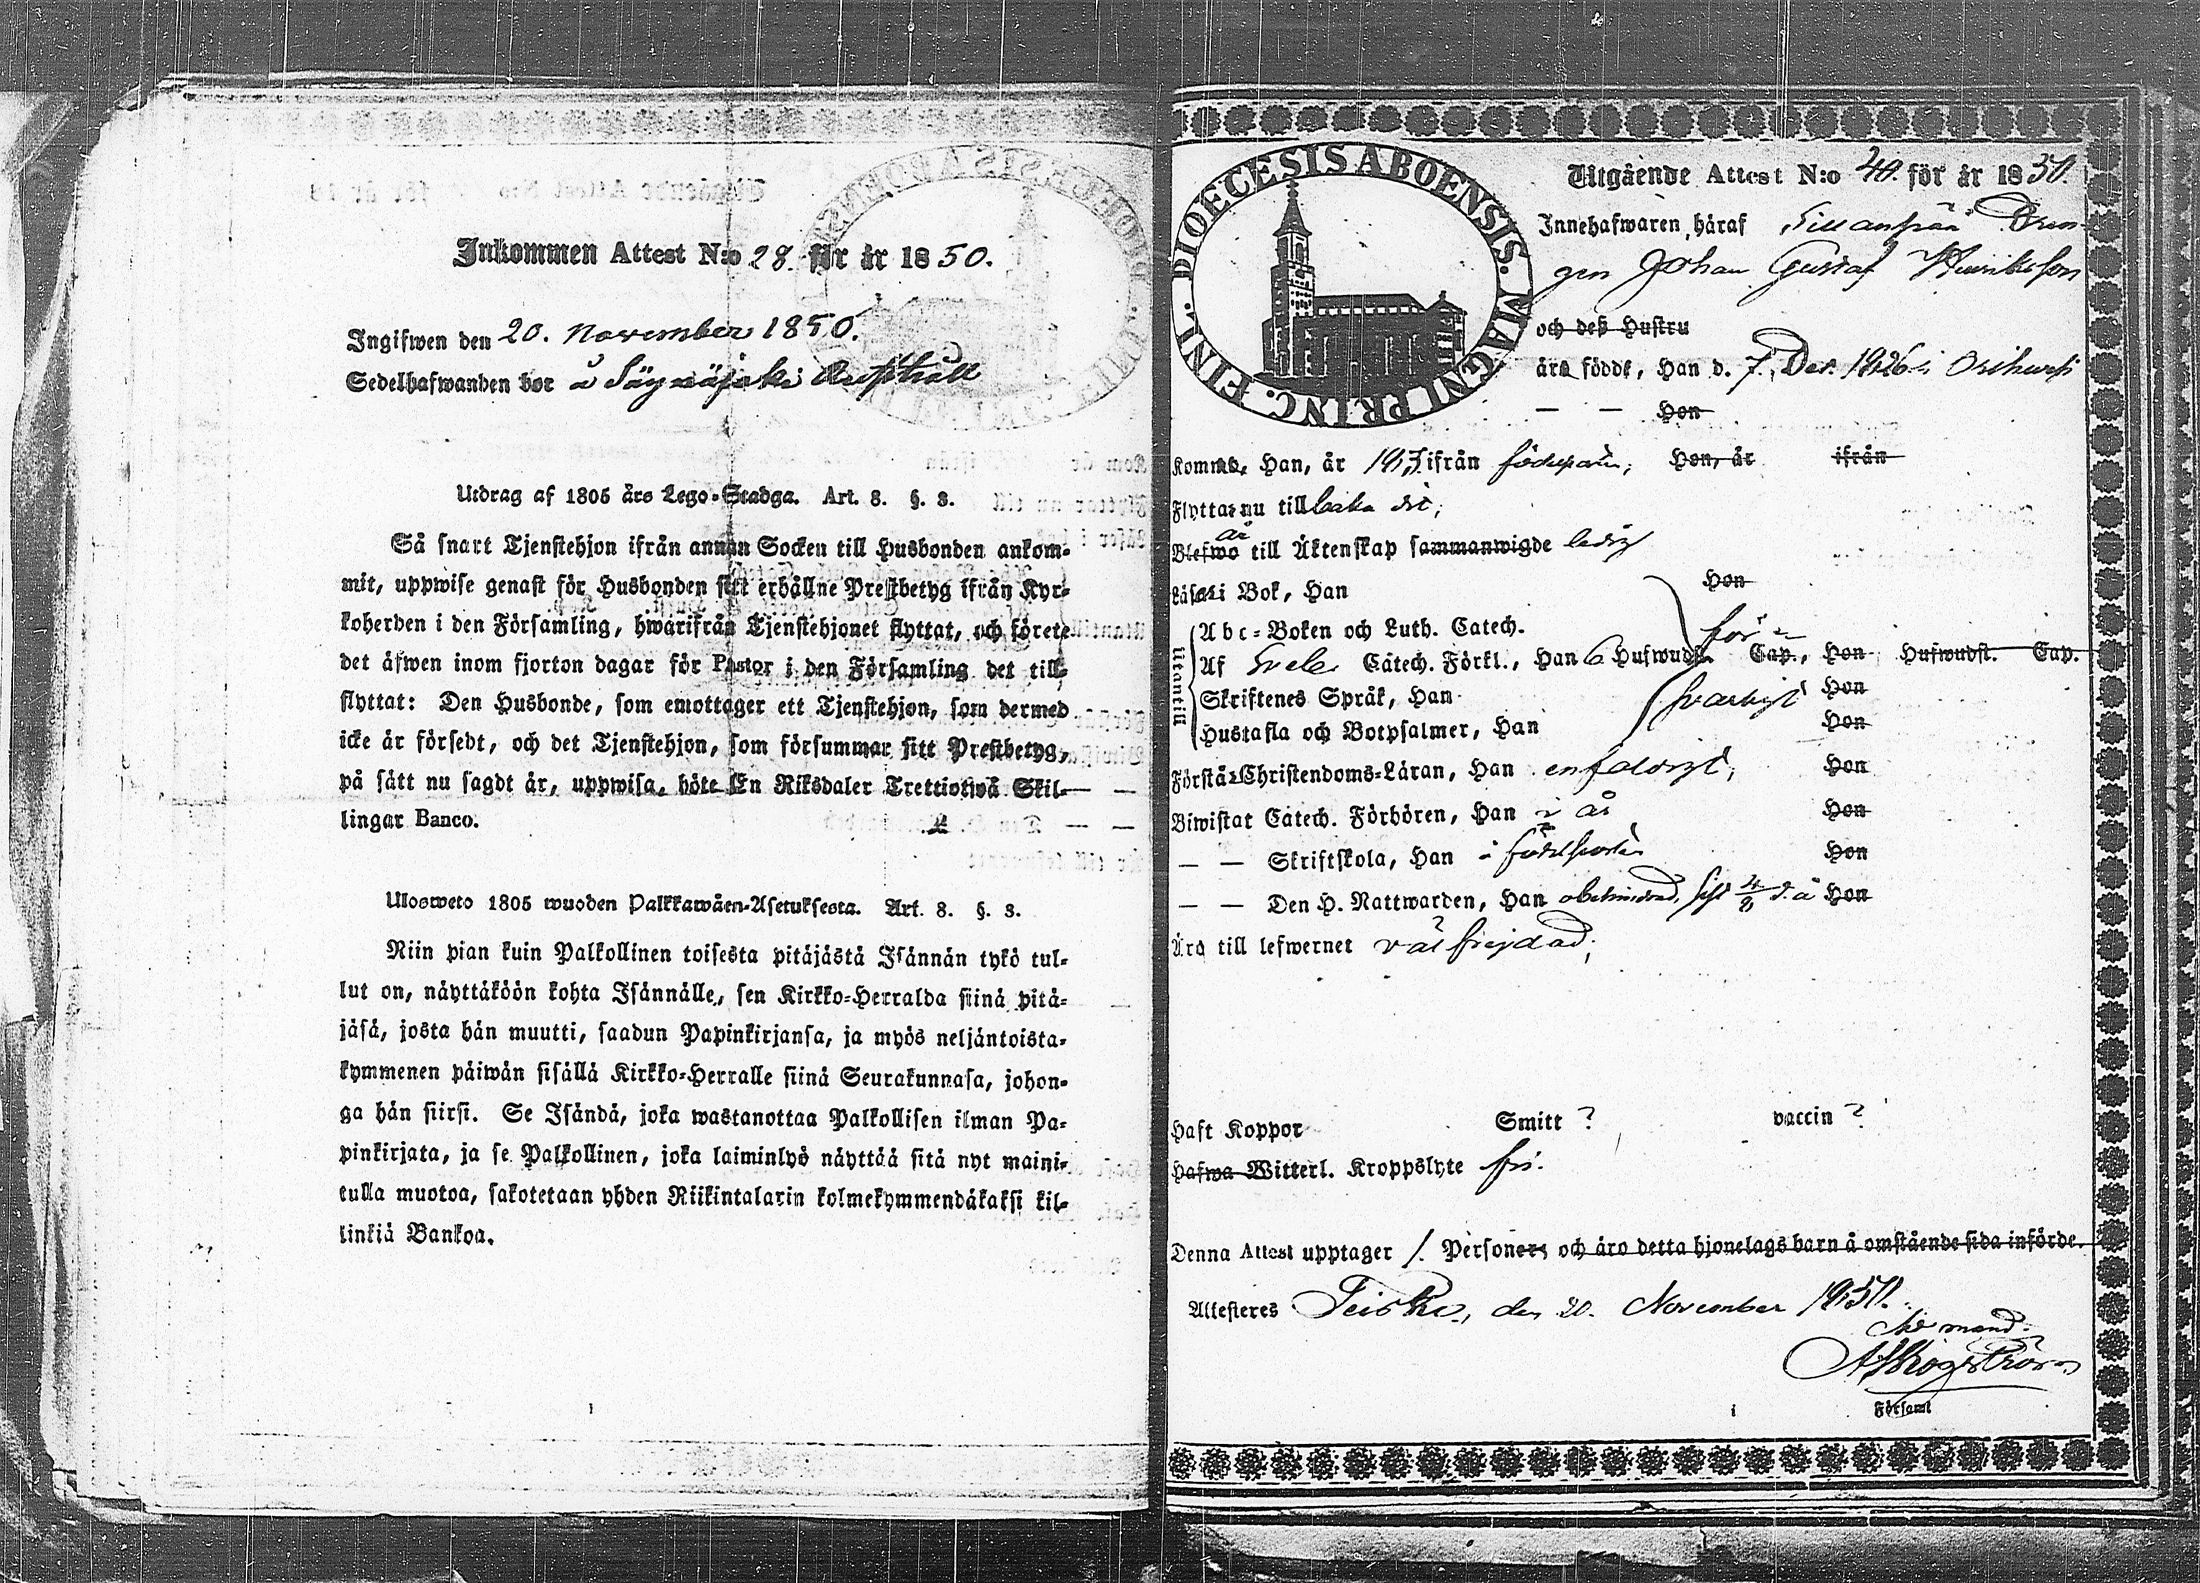 Inkommen Attest N:o 28. för år 1850.
Ingifwen den 20. November 1850.
Sedelhafwanden bor å Säynäjoki Rusthåll
Utdrag af 1805 års Lego-Stadga. Art. 8. §. 3.
Så snart Tjenstehjon ifrån annan Socken till Husbonden ankom-
mit, uppwise genast för Husbonden sitt erhållne Prestbetyg ifrån Kyr-
koherden i den Församling, hwarifrån Tjenstehjonet flyttat, och förete
det äfwen inom fjorton dagar för Pastor i den Församling det till-
flyttat: Den Husbonde, som emottager ett Tjenstehjon, som dermed
icke är försedt, och det Tjenstehjon, som försummar sitt Prestbetyg,
på sätt nu sagdt är, uppwisa, böte En Riksdaler Trettiotwå Skil-
lingar Banco.
Ulosweto 1805 wuoden Palkkawäen-Asetuksesta. Art. 8. §. 3.
Niin pian kuin Palkollinen toisesta pitäjästä Isännän tykö tul-
lut on, näyttäköön kohta Isännälle, sen Kirkko-Herralda siinä pitä-
jäsä, josta hän muutti, saadun Papinkirjansa, ja myös neljäntoista-
kymmenen päiwän sisällä Kirkko-Herralle siinä Seurakunnasa, johon-
ga hän siirsi. Se Isändä, joka wastanottaa Palkollisen ilman Pa-
pinkirjata, ja se Palkollinen, joka laiminlyö näyttää sitä nyt maini-
tulla muotoa, sakotetaan yhden Riikintalarin kolmekymmendäkaksi kil-
linkiä Bankoa.
DIOECESIS ABOENSIS. MAGNI PRINC. FINL.
Utgående Attest N:o 40. för år 1850.
Innehafwaren häraf Dren-
gen Johan Gustaf Henriksson
och deß Hustru
äro födde, Han d. 7. Dec. 1826 i Orihwesi
— — Hon
Kommo, Han, år ifrån födelseorten; Hon, år ifrån
Flyttar nu tillbaka dit;
är
Blefwo till Äktenskap sammanwigde ledig
Läser i Bok, Han Hon
Utantill
Abc-Boken och Luth. Catech. för-
Af Sveb. Catech. Förkl., Han 6 Hufwudst. Cap., Hon Hufwudst. Cap.
Skriftenes Språk, Han svarligt Hon
Hustafla och Botpsalmer, Han Hon
Förstår Christendoms-Läran, Han enfaldigt; Hon
Biwistat Catech. Förhören, Han i år Hon
— — Skriftskola, Han i födelseorten Hon
— — Den H. Nattwarden, Han obehindrad, sist d. å Hon
Äro till lefwernet välfrejdad;
Haft Koppor Smitt ? vaccin ?
Hafwa Witterl. Kroppslyte fri.
Denna Attest upptager 1. Personer, och äro detta hjonelags barn å omstående sida införde.
Attesteras Teisko, den 20. November 1850.
Ad mand:
Församl